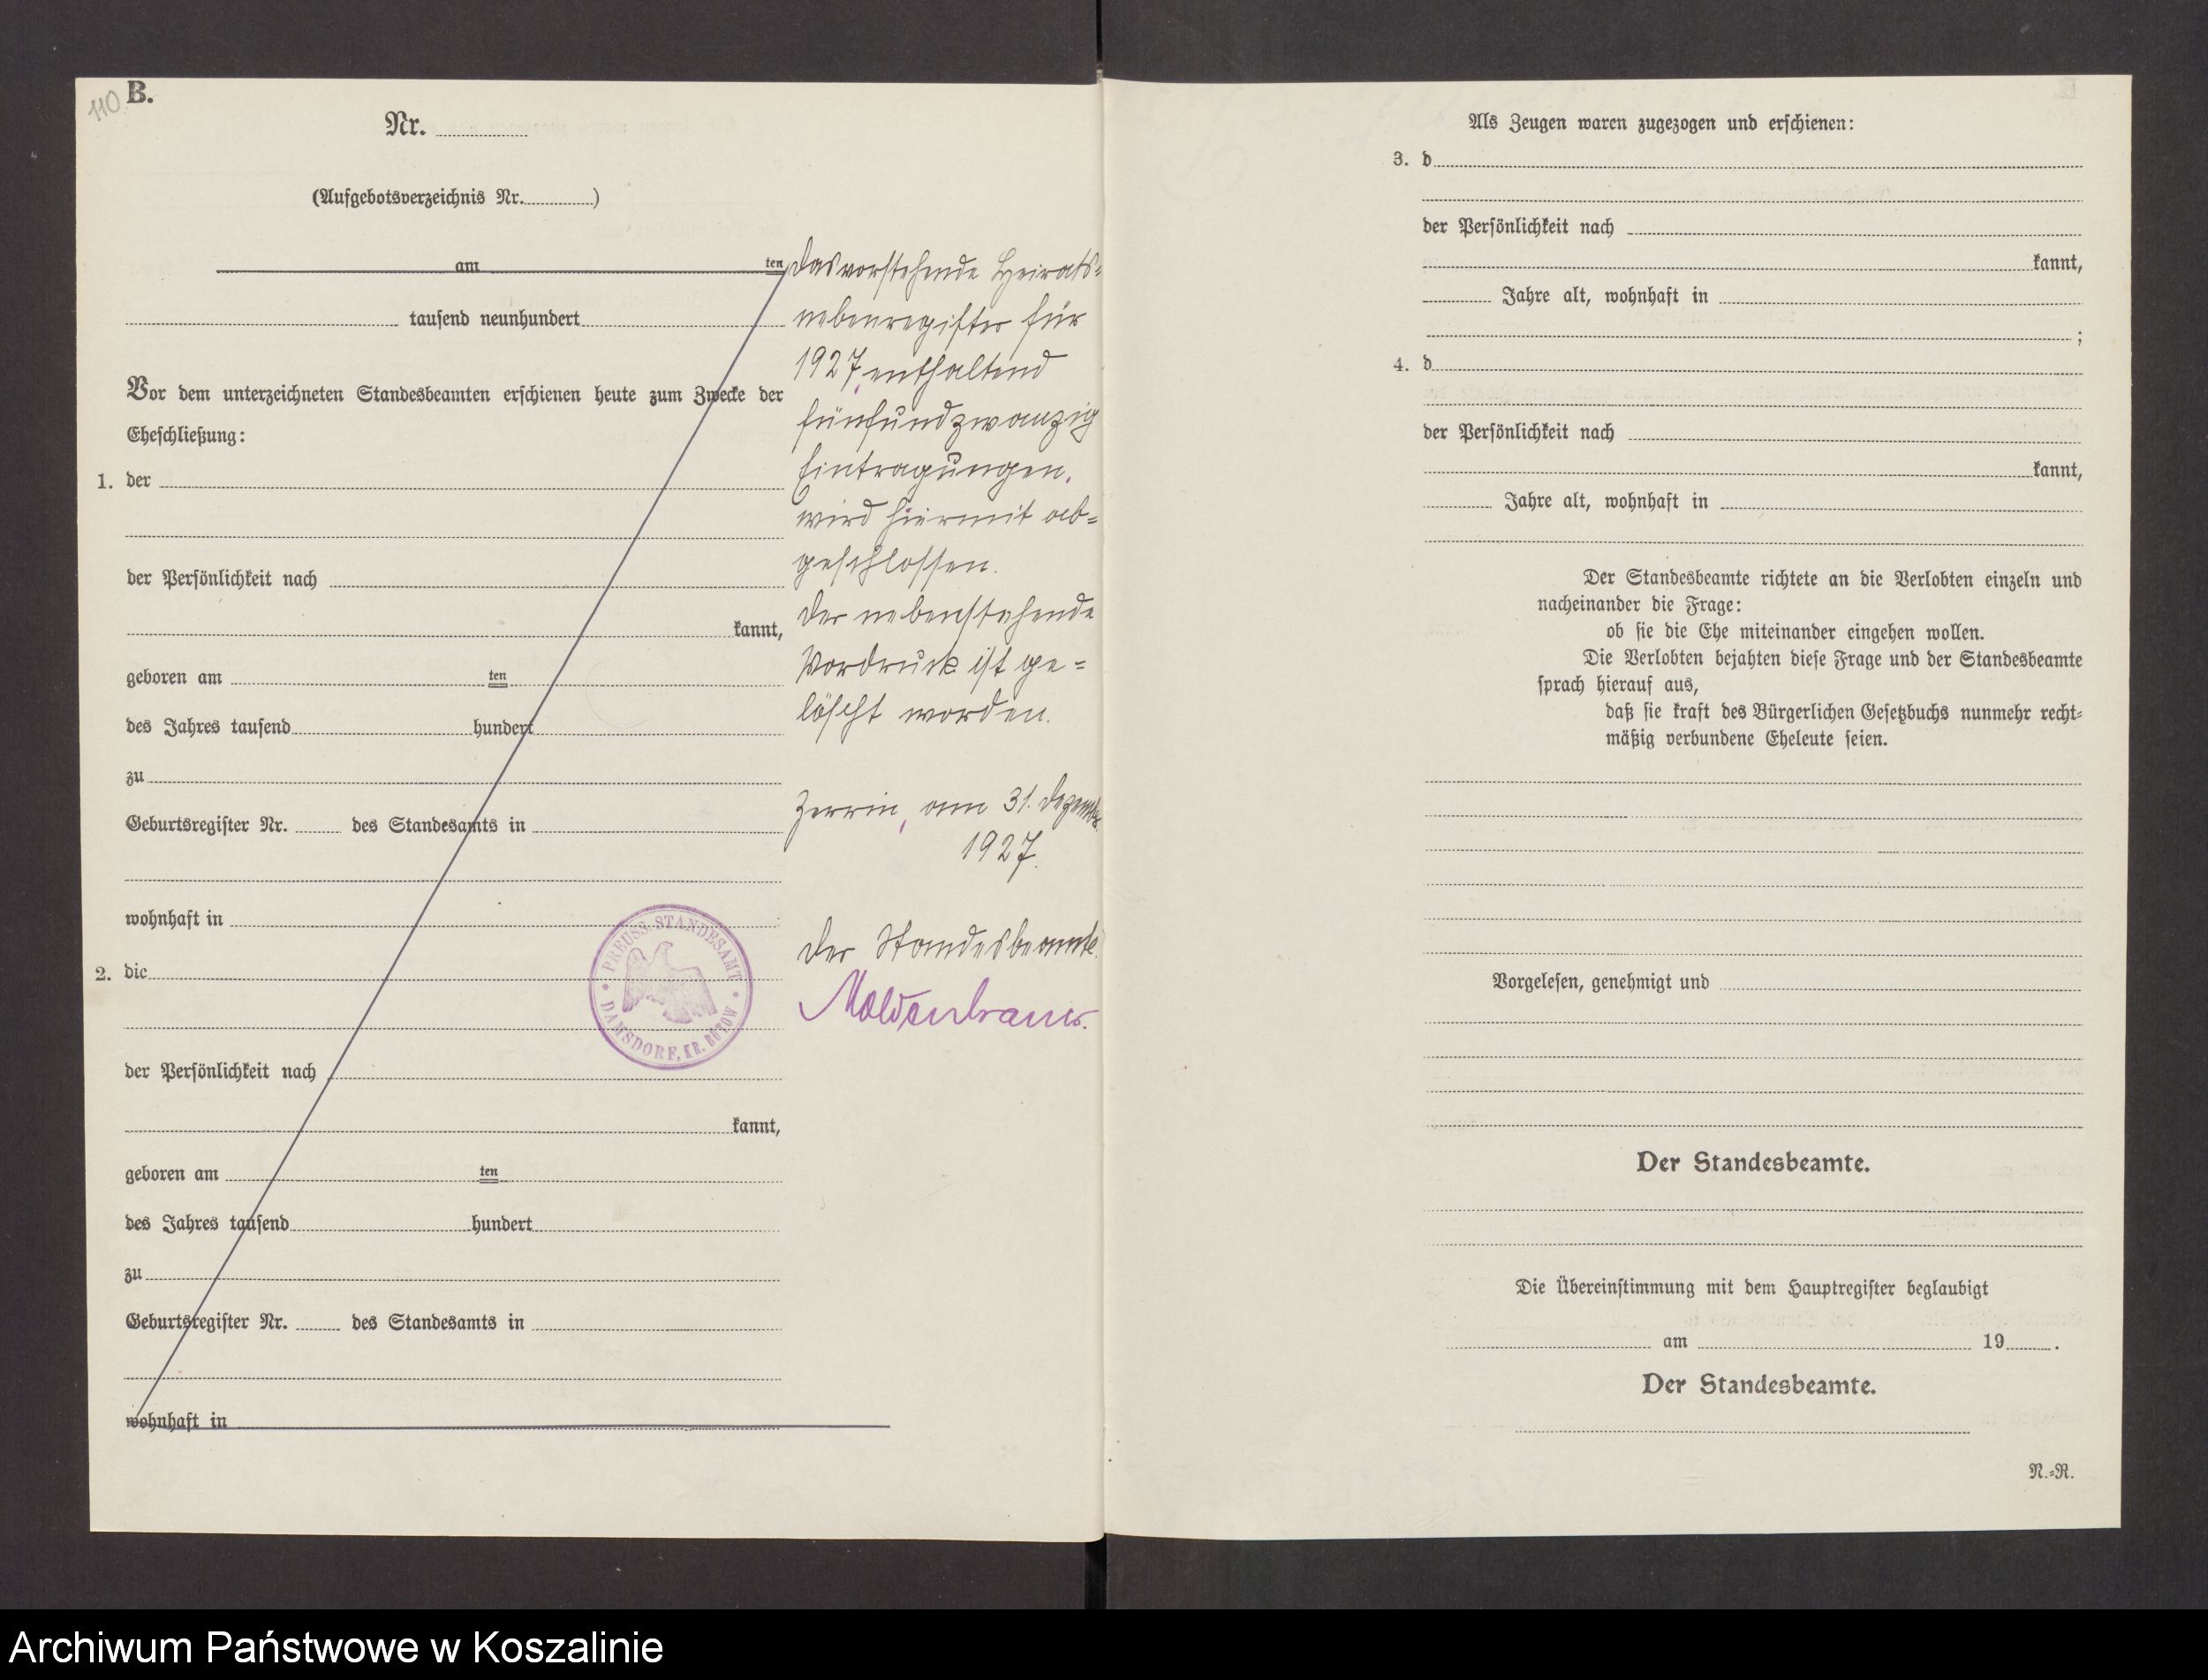 110
B.
Nr.
(Aufgebotsverzeichnis Nr. )
am ten
tausend neunhundert
Vor dem unterzeichneten Standesbeamten erschienen heute zum Zwecke der
Eheschließung:
1. der
der Persönlichkeit nach
kannt,
geboren am ten
des Jahres tausend hundert
zu
Geburtsregister Nr. des Standesamts in
wohnhaft in
2. die
der Persönlichkeit nach
kannt,
geboren am ten
des Jahres tausend hundert
zu
Geburtsregister Nr. des Standesamts in
wohnhaft in
Das vorstehende Heirats-
nebenregister für
1927, enthaltend
fünfundzwanzig
Eintragungen,
wird hiermit ab-
geschlossen.
Der nebenstehende
Vordruck ist ge-
löscht worden.
Zerrin, am 31. Dezember
1927.
Der Standesbeamte.
Moldenhauer.
PREUSS. STANDESAMT
DAMSDORF, KR. BÜTOW
Als Zeugen waren zugezogen und erschienen:
3. d
der Persönlichkeit nach
kannt,
Jahre alt, wohnhaft in
;
4. d
der Persönlichkeit nach
kannt,
Jahre alt, wohnhaft in
Der Standesbeamte richtete an die Verlobten einzeln und
nacheinander die Frage:
ob sie die Ehe miteinander eingehen wollen.
Die Verlobten bejahten diese Frage und der Standesbeamte
sprach hierauf aus,
daß sie kraft des Bürgerlichen Gesetzbuchs nunmehr recht-
mäßig verbundene Eheleute seien.
Vorgelesen, genehmigt und
Der Standesbeamte.
Die Übereinstimmung mit dem Hauptregister beglaubigt
am 19 .
Der Standesbeamte.
N.-R.
Archiwum Państwowe w Koszalinie